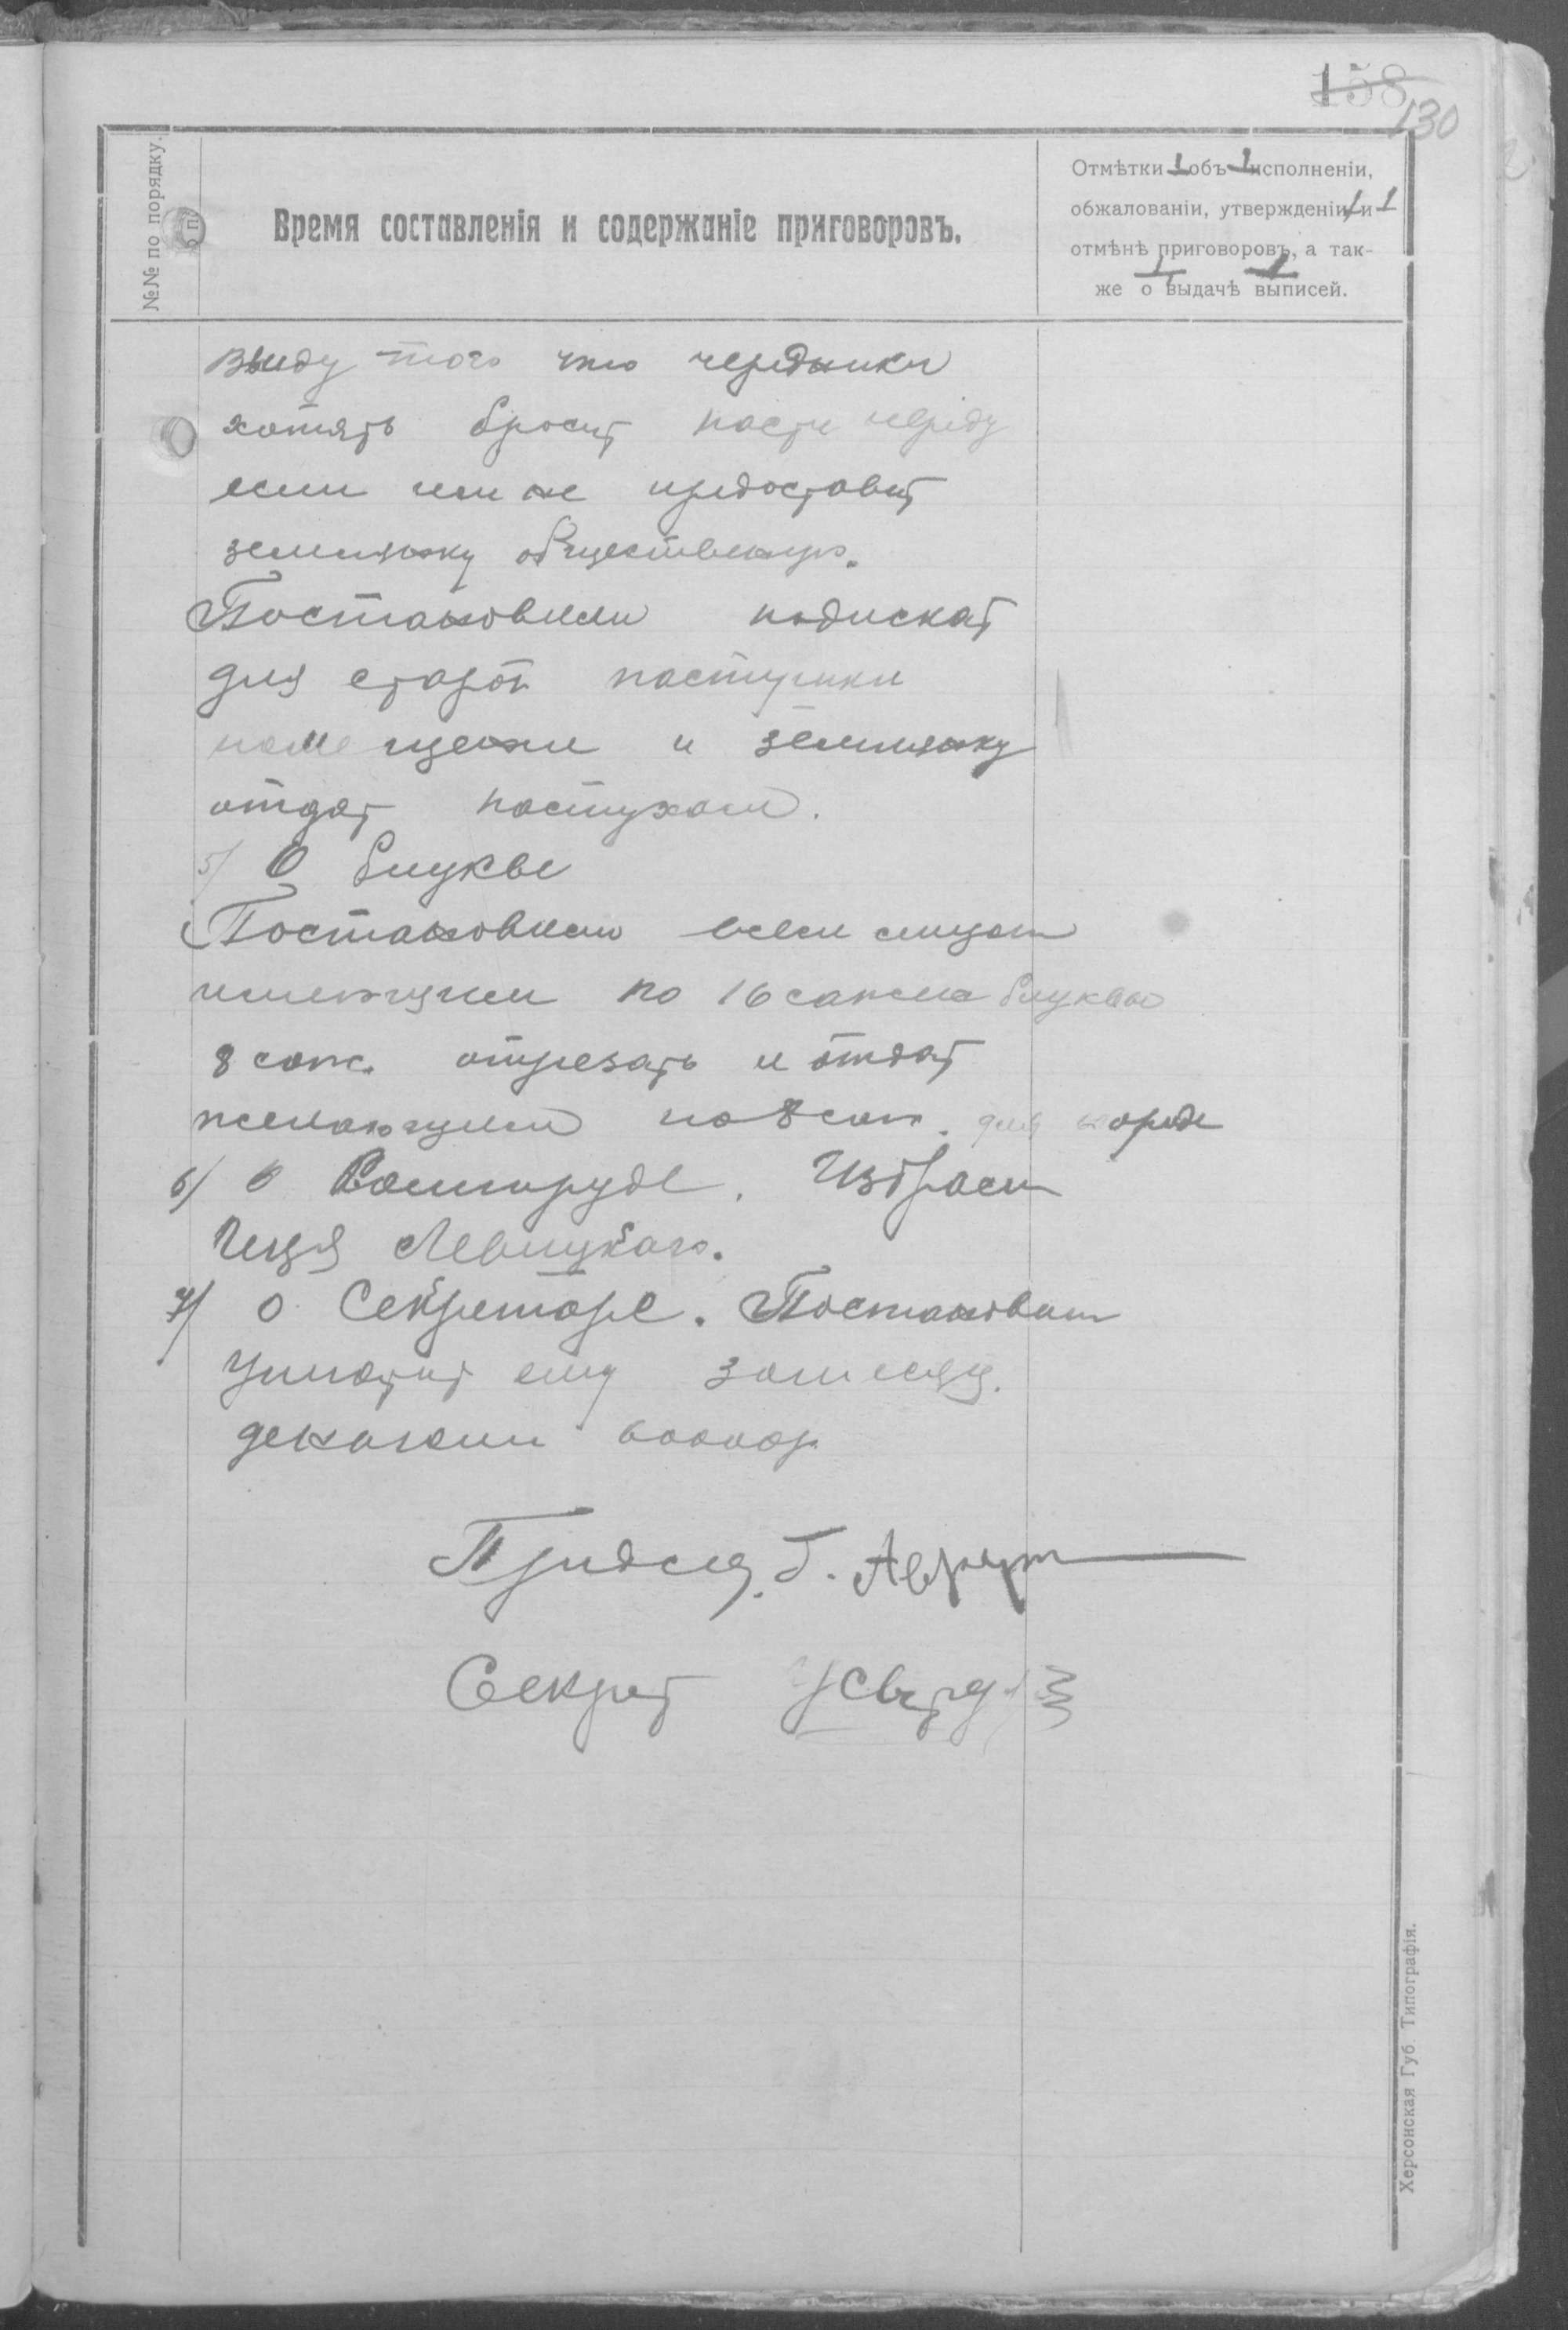 158
130
№№ по порядку.
Время составленія и содержаніе приговоровъ.
Отмѣтки объ исполненіи,
обжалованіи, утвержденіи и
отмѣнѣ приговоровъ, а так-
же о выдачѣ выписей.
Ввиду того что чередники
хотять бросит пасти череду
если им не предоставит
землянку общественную.
Постановили подискат
для старой пастушки
помещение и землянку
отдат пастухам.
5/ О буукве
Постановили всем лицам
имеющим по 16 сажен буукви
8 саж. отрезать и отдат
желающим по 8 саж. для
6/ О Комтруде. Избрали
Левицкаго.
7/ О Секретаре. Постановили
Уплатит ему за месяц
декабрь
Председ. Г.
Секрет
Херсонская Губ. Типографія.